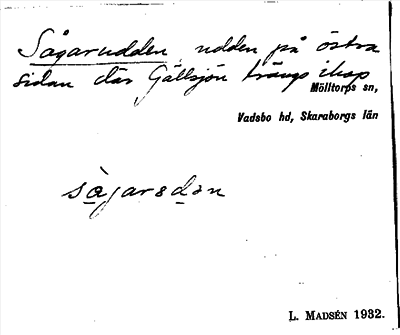 Sågarudden, udden på östra
sidan där Gällsjön trängs ihop
Mölltorps sn,
Vadsbo hd, Skaraborgs län
sågarsdan
L. MADSÉN 1932.